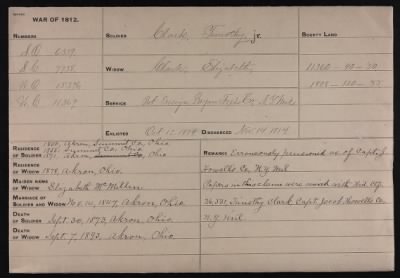 WAR OF 1812.
NUMBERS
SOLDIER Clark, Timothy, jr.
BOUNTY LAND
S.O.
S.C.
WIDOW Clark, Elizabeth
11360-40-50
W.O.
W.C.
SERVICE Co., N.Y. Mil
ENLISTED Oct 12, 1814 DISCHARGED Nov 14, 1814
RESIDENCE OF SOLDIER 1850, Akron, Summit Co., Ohio
1855, Summit Co., Ohio
1871, Akron, Summit Co., Ohio
RESIDENCE OF WIDOW 1878, Akron, Ohio
MAIDEN NAME OF WIDOW Elizabeth McMillen
MARRIAGE OF SOLDIER AND WIDOW 1847, Akron, Ohio
DEATH OF SOLDIER Sept. 30, 1873, Akron, Ohio
DEATH OF WIDOW Sept. 7, 1892, Akron, Ohio
REMARKS Erroneously pensioned as of Capt. J.
Howells Co. N.Y. Mil
Papers in this claim were consd with Wid. Off.
Timothy Clark Capt. Jacob Howells Co.
N.Y. Mil